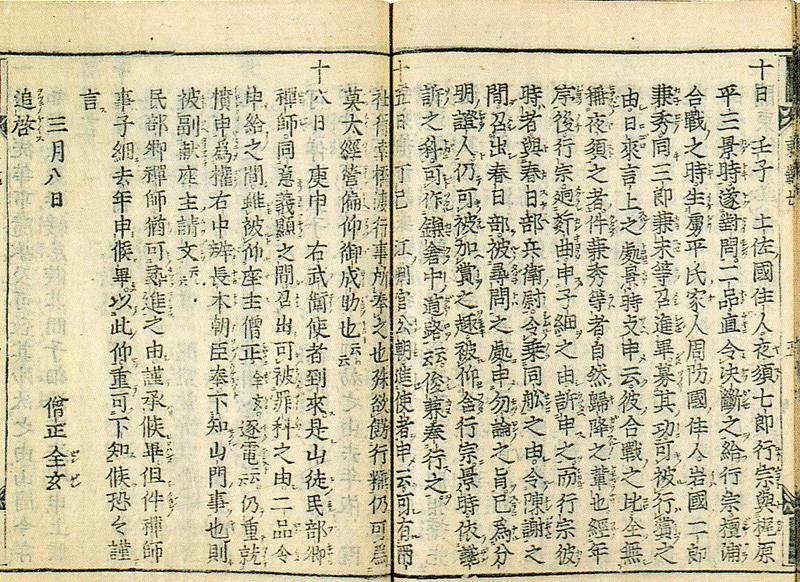 十日 壬子 土佐國住人夜須七郎行宗與梶原
平三景時遂對問二品直令决斷之給行宗檀浦
合戰之時生虜平氏家人周防國住人岩國二郎
兼秀同三郎兼末等召進畢募其功可被行賞之
由日來言上之處景時支申云彼合戰之比全無
稱夜須之者件兼秀等者自然歸降之輩也經年
序後行宗廻姧曲申子細之由訴申之而行宗彼
時者與春日部兵衛尉令乘同舩之由令陳謝之
間召出春日部被尋問之處申勿論之旨已為分
明證人仍可被加賞之趣被仰含行宗景時依讒
訴之科可作鎌倉中道路云後兼奉行之
十五日 丁巳 江判官公朝進使者申云可有
社行幸橋渡行事所奉之也殊欲餝行粧仍可為
莫大經營偏仰御成助也云云
十八日 庚申 右武衞使者到來是山徒民部卿
禪師同意義顯之間召出可被罪科之由二品令
申給之間雖被仰座主僧正全玄逐電云仍重就
憤申為權右中辨長本朝臣奉下知山門事也則
被副獻座主請文云
民部卿禪師猶可尋進之由謹承候畢但件禪師
事子細去年申候畢以此仰重可下知候恐々謹
言
三月八日 僧正全玄
追啓